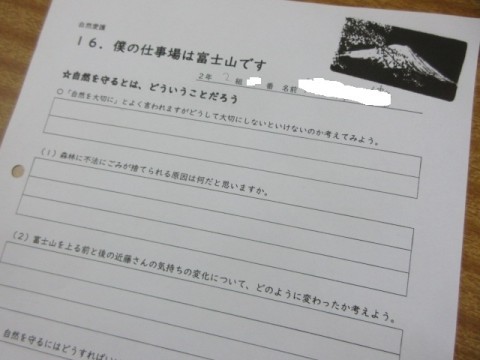 自然愛護
16．僕の仕事場は富士山です
2年 2 組 番 名前
☆自然を守るとは、どういうことだろう
○「自然を大切に」とよく言われますがどうして大切にしないといけないのか考えてみよう。
(1) 森林に不法にごみが捨てられる原因は何だと思いますか。
(2) 富士山を上る前と後の近藤さんの気持ちの変化について、どのように変わったか考えよう。
自然を守るにはどうすればい